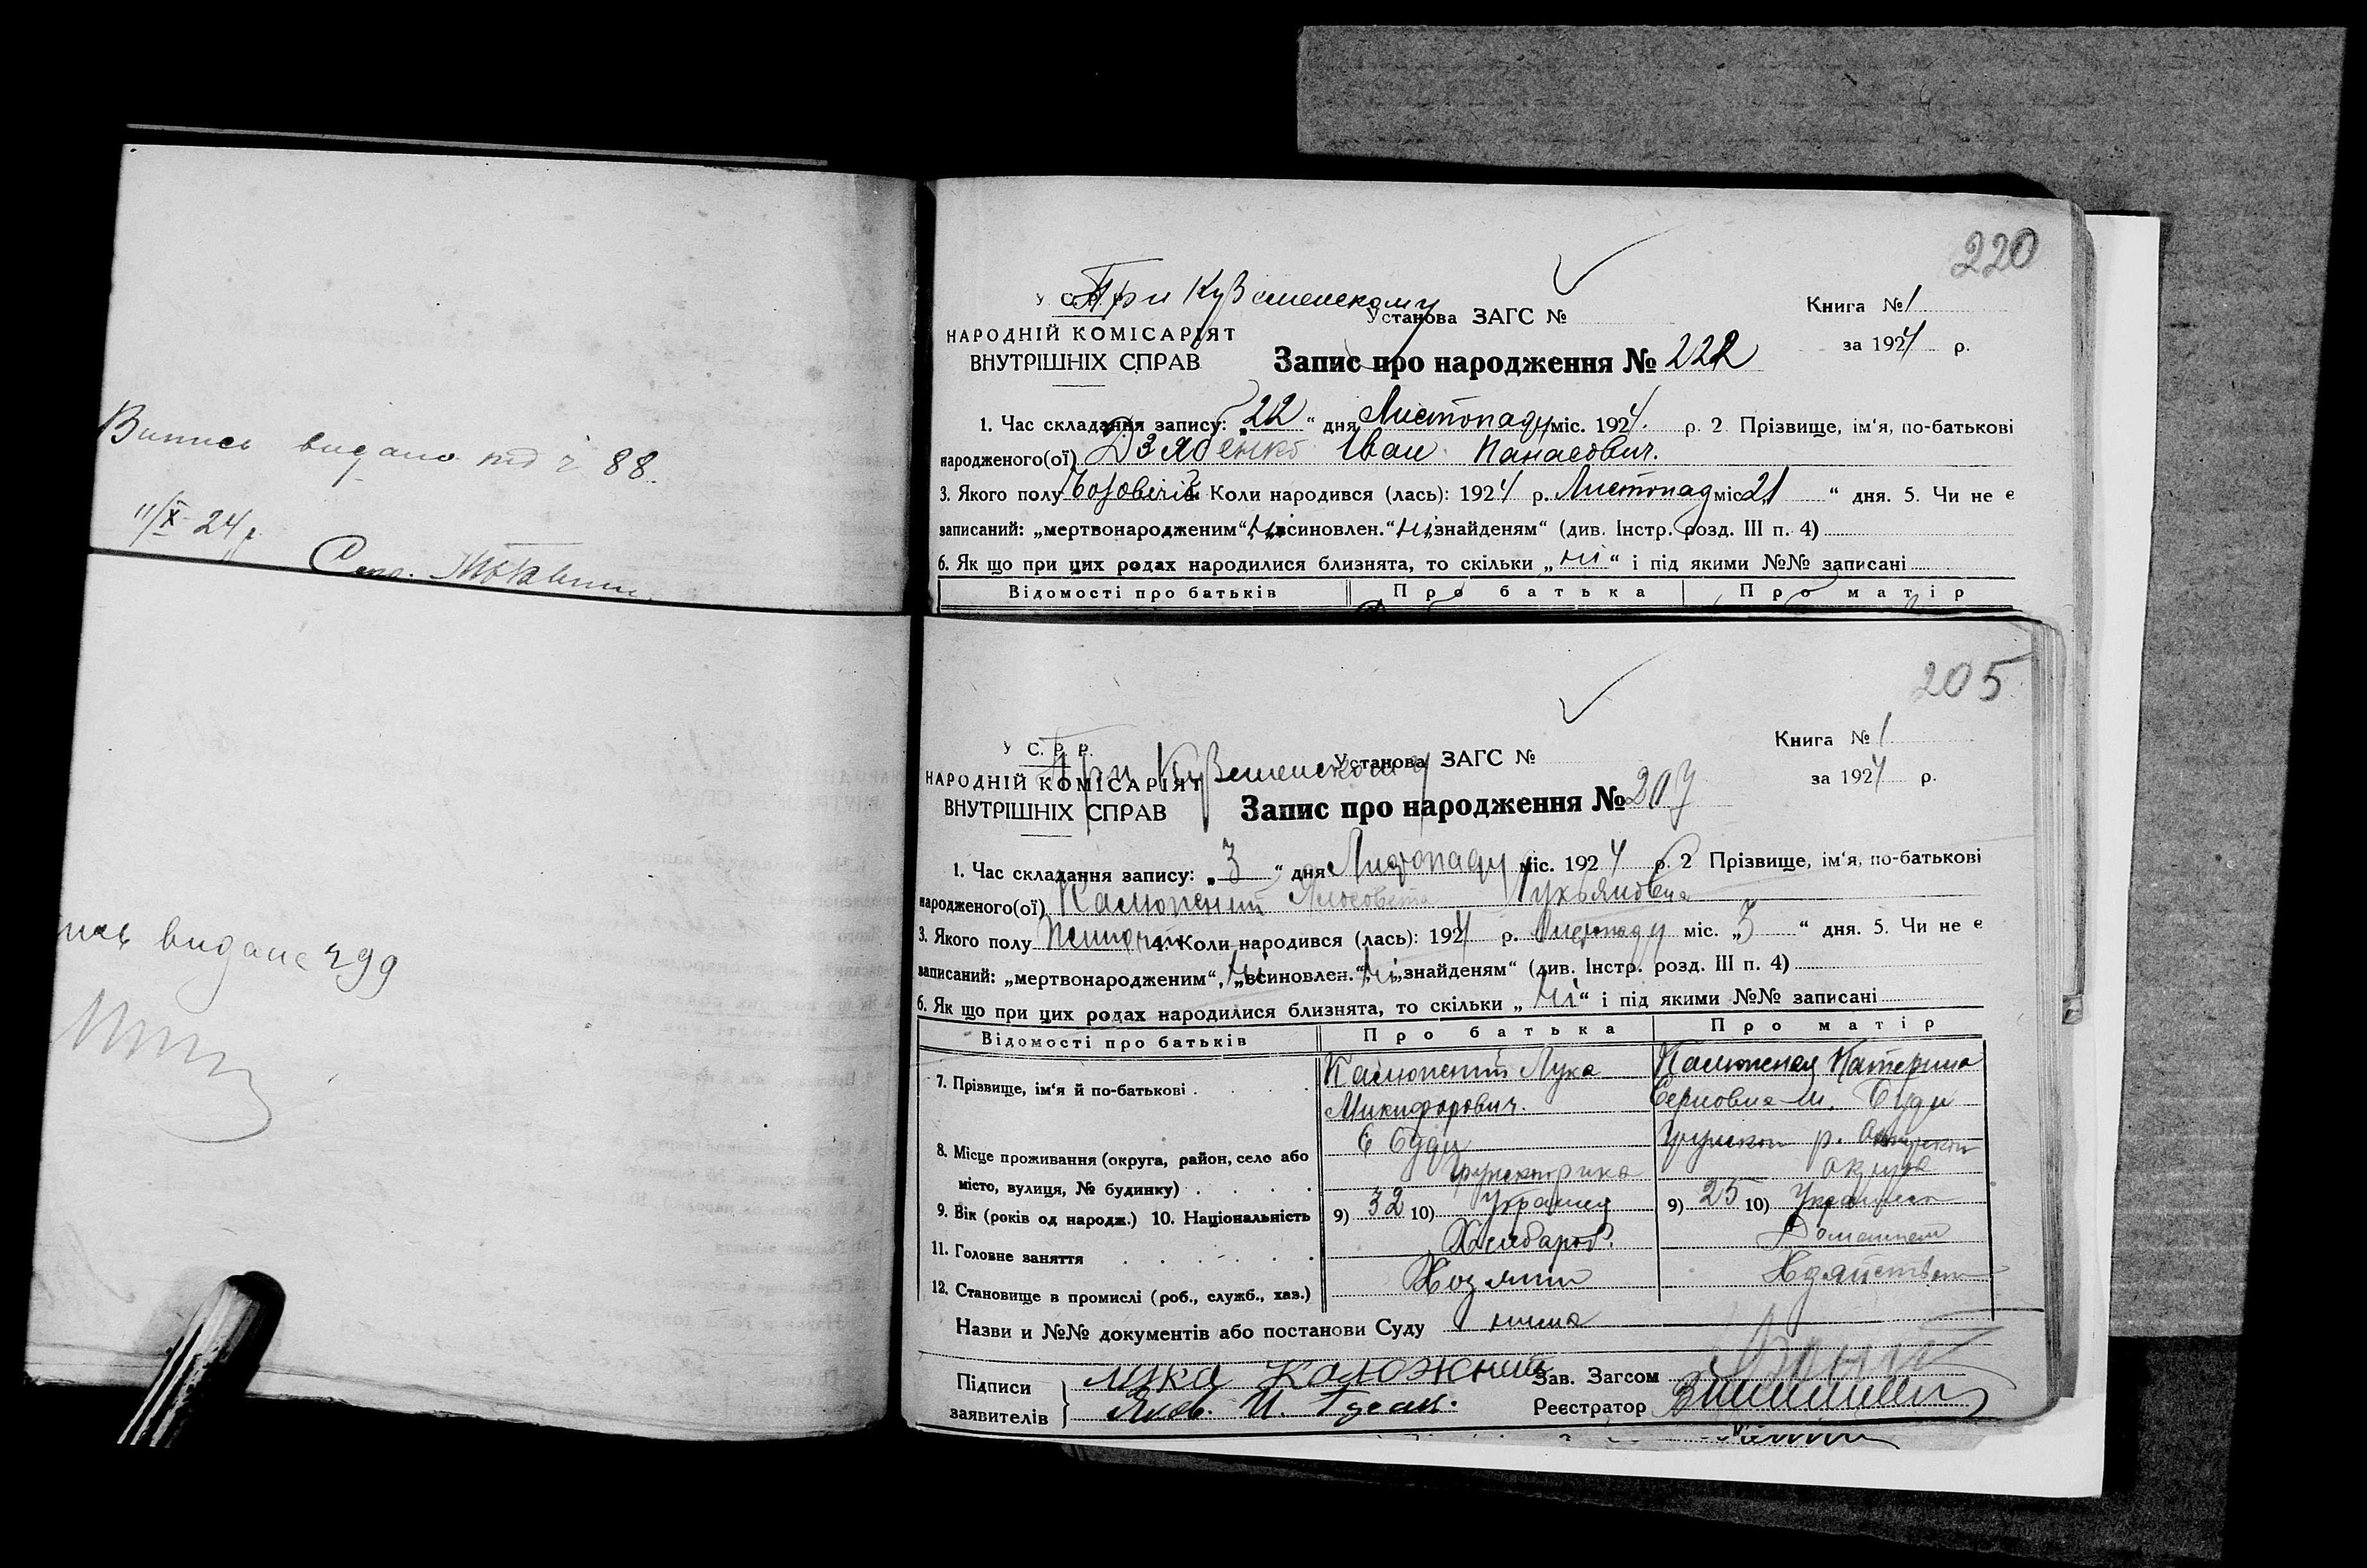 Випись видано під ч 88.
11/X 24 р.
220
У С. Р. Р.
При Куземенскому
Установа ЗАГС №
Книга № 1
НАРОДНІЙ КОМІСАРІЯТ
ВНУТРІШНІХ СПРАВ
за 1924 р.
Запис про народження № 222
1. Час складання запису: „22“ дня Листопаду міс. 1924. р. 2 Прізвище, ім‘я, по-батькові
народженого(ої) Дзябенко Іван Панасович.
3. Якого полу 4. Коли народився (лась): 1924 р. Листопад міс. 21 “ дня. 5. Чи не є
записаний: „мертвонародженим“, ні „всиновлен.“ ні „знайденям“ (див. Інстр. розд. III п. 4)
6. Як що при цих родах народилися близнята, то скільки „ні“ і під якими №№ записані
Відомості про батьків Про батька Про матір
видане ч 99
205
У С. Р. Р.
При Куземенскому
Установа ЗАГС №
Книга № 1
НАРОДНІЙ КОМІСАРІЯТ
ВНУТРІШНІХ СПРАВ
за 1924 р.
Запис про народження № 207
1. Час складання запису: „3“ дня Листопаду міс. 1924 р. 2 Прізвище, ім‘я, по-батькові
народженого(ої) Калюжний Лукьяновна
3. Якого полу 4. Коли народився (лась): 1924 р. Листопаду міс. „3 “ дня. 5. Чи не є
записаний: „мертвонародженим“, ні „всиновлен.“ ні „знайденям“ (див. Інстр. розд. III п. 4)
6. Як що при цих родах народилися близнята, то скільки „ні“ і під якими №№ записані
Відомості про батьків Про батька Про матір
7. Прізвище, ім‘я й по-батькові . Калюжний Лука Калюжная Катерина
Микифорович.
8. Місце проживання (округа, район, село або
місто, вулиця, № будинку) .
9. Вік (років од народж.) 10. Національність 9) 32 10) Украинец 9) 25 10) Украинка
11. Головне заняття Хлебороб. Домашнем
12. Становище в промислі (роб., служб., хаз.) Хозяин Хозяйством
Назви и №№ документів або постанови Суду нима
Підписи Лука Калюжний Зав. Загсом
заявителів Реєстратор